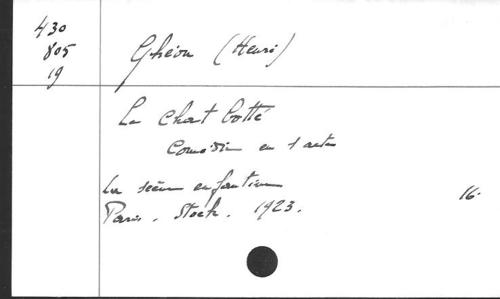 430
805
19
Ghéon (Henri)
Le Chat botté
Comédie en 1 acte
La scène enfantine
Paris. Stock. 1923.
16.